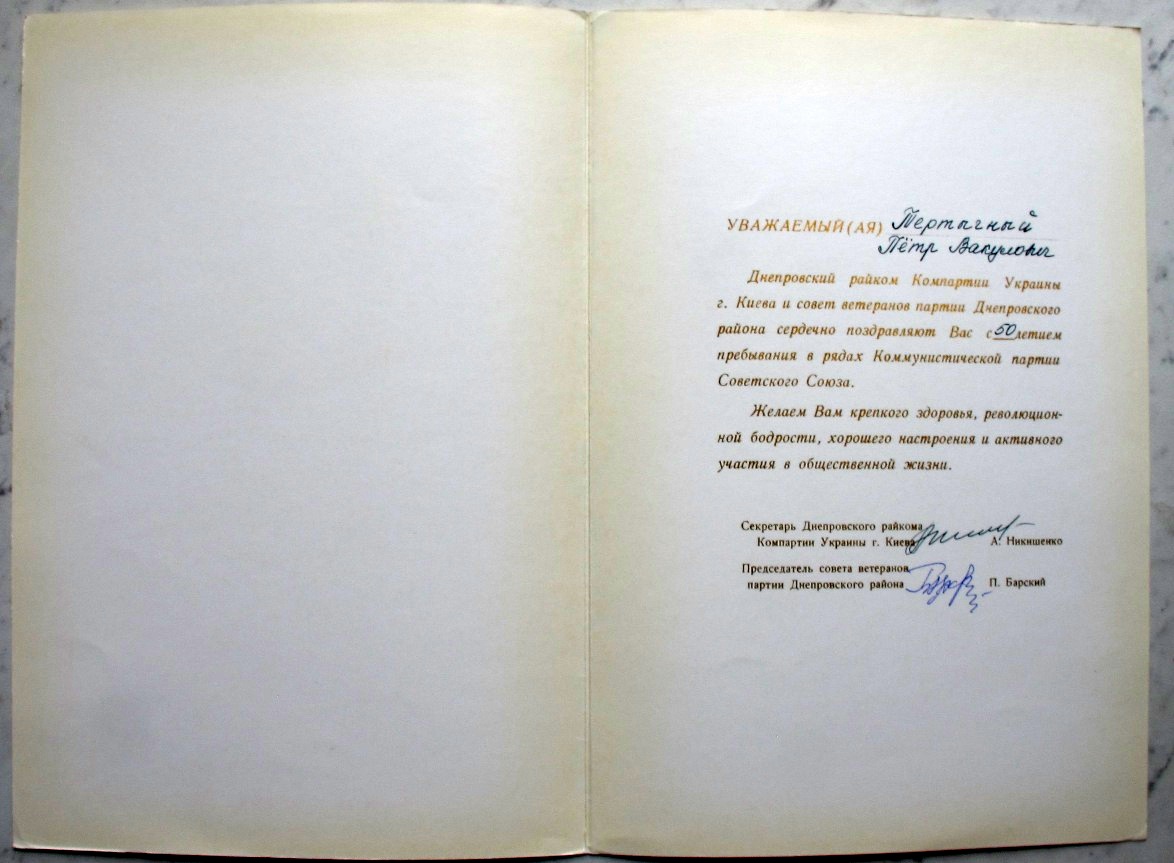 УВАЖАЕМЫЙ(АЯ) Тертычный
Пётр Вакулович
Днепровский райком Компартии Украины
г. Киева и совет ветеранов партии Днепровского
района сердечно поздравляют Вас с 50летием
пребывания в рядах Коммунистической партии
Советского Союза.
Желаем Вам крепкого здоровья, революцион-
ной бодрости, хорошего настроения и активного
участия в общественной жизни.
Секретарь Днепровского райкома
Компартии Украины г. Киева А. Никишенко
Председатель совета ветеранов
партии Днепровского района П. Барский